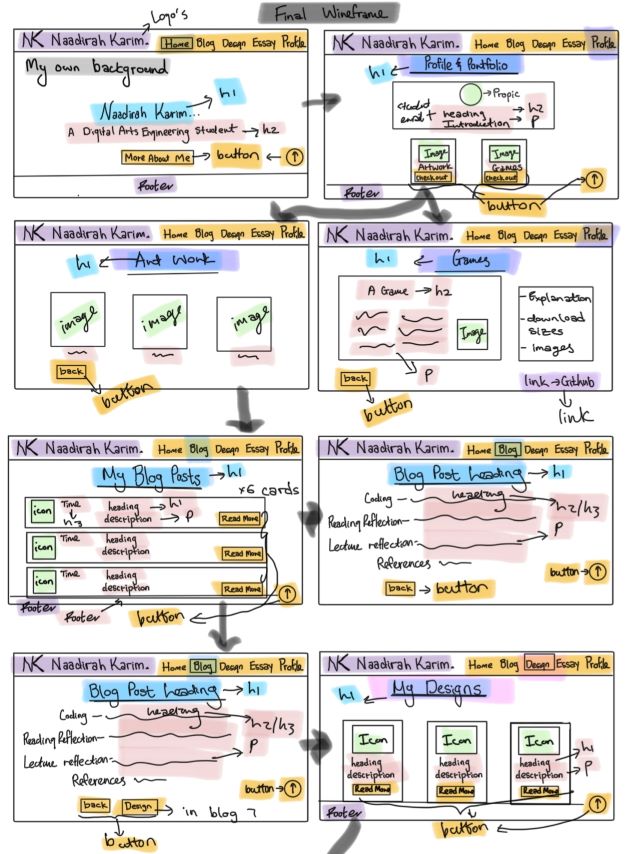 Final Wireframe
Logo's
NK Naadirah Karim. Home Blog Design Essay Profile
My own background
h1
Naadirah Karim...
A Digital Arts Engineering Student h2
More About Me button
Footer
NK Naadirah Karim. Home Blog Design Essay Profile
h1 Profile & Portfolio
Propic
student email + heading h2
Introduction P
Image Image
Artwork Games
Check out Check out
Footer
button
NK Naadirah Karim. Home Blog Design Essay Profile
h1 Art Work
image image image
back
button
NK Naadirah Karim. Home Blog Design Essay Profile
h1 Games
A Game h2
Image
P
- Explanation
- download
sizes
- images
back
button
link Github
link
NK Naadirah Karim. Home Blog Design Essay Profile
My Blog Posts h1
x6 cards
icon Time heading h1
h3 description P Read More
icon Time heading
description Read More
icon Time heading
description Read More
Footer
Footer button
NK Naadirah Karim. Home Blog Design Essay Profile
Blog Post Heading h1
Coding heading h2/h3
Reading Reflection
Lecture reflection P
References
button
back button
NK Naadirah Karim. Home Blog Design Essay Profile
Blog Post Heading h1
Coding heading h2/h3
Reading Reflection
Lecture reflection P
References
button
back Design in blog 7
button
NK Naadirah Karim. Home Blog Design Essay Profile
h1 My Designs
Icon Icon Icon
heading heading heading h1
description description description P
Read More Read More Read More
Footer
button